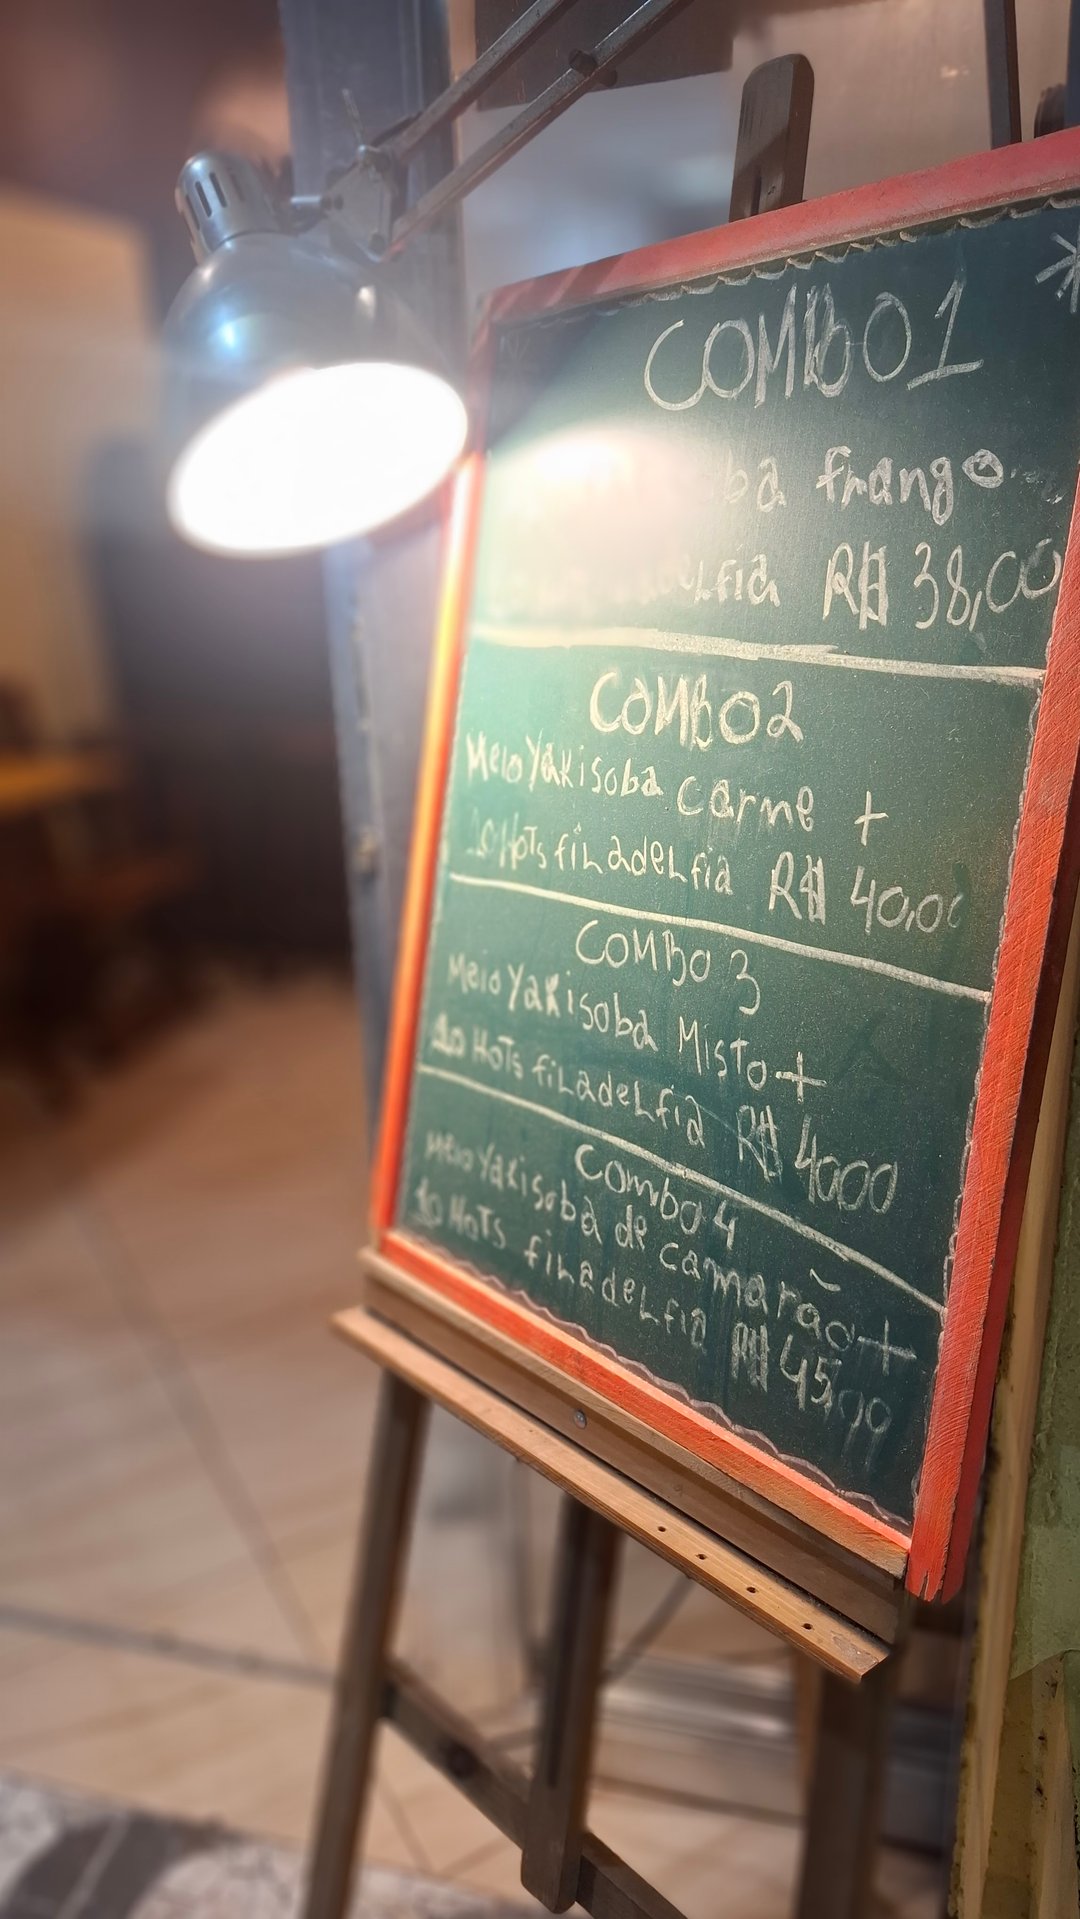 COMBO 1
ba frango
Lfia R$ 38,00
COMBO 2
Meio Yakisoba carne +
10 HoTs fiLadeLfia R$ 40,00
COMBO 3
Meio Yakisoba MisTo +
10 HoTs fiLadeLfia R$ 4000
Combo 4
Meio Yakisoba de camarão +
10 HoTs fiLadeLfia R$ 45,99